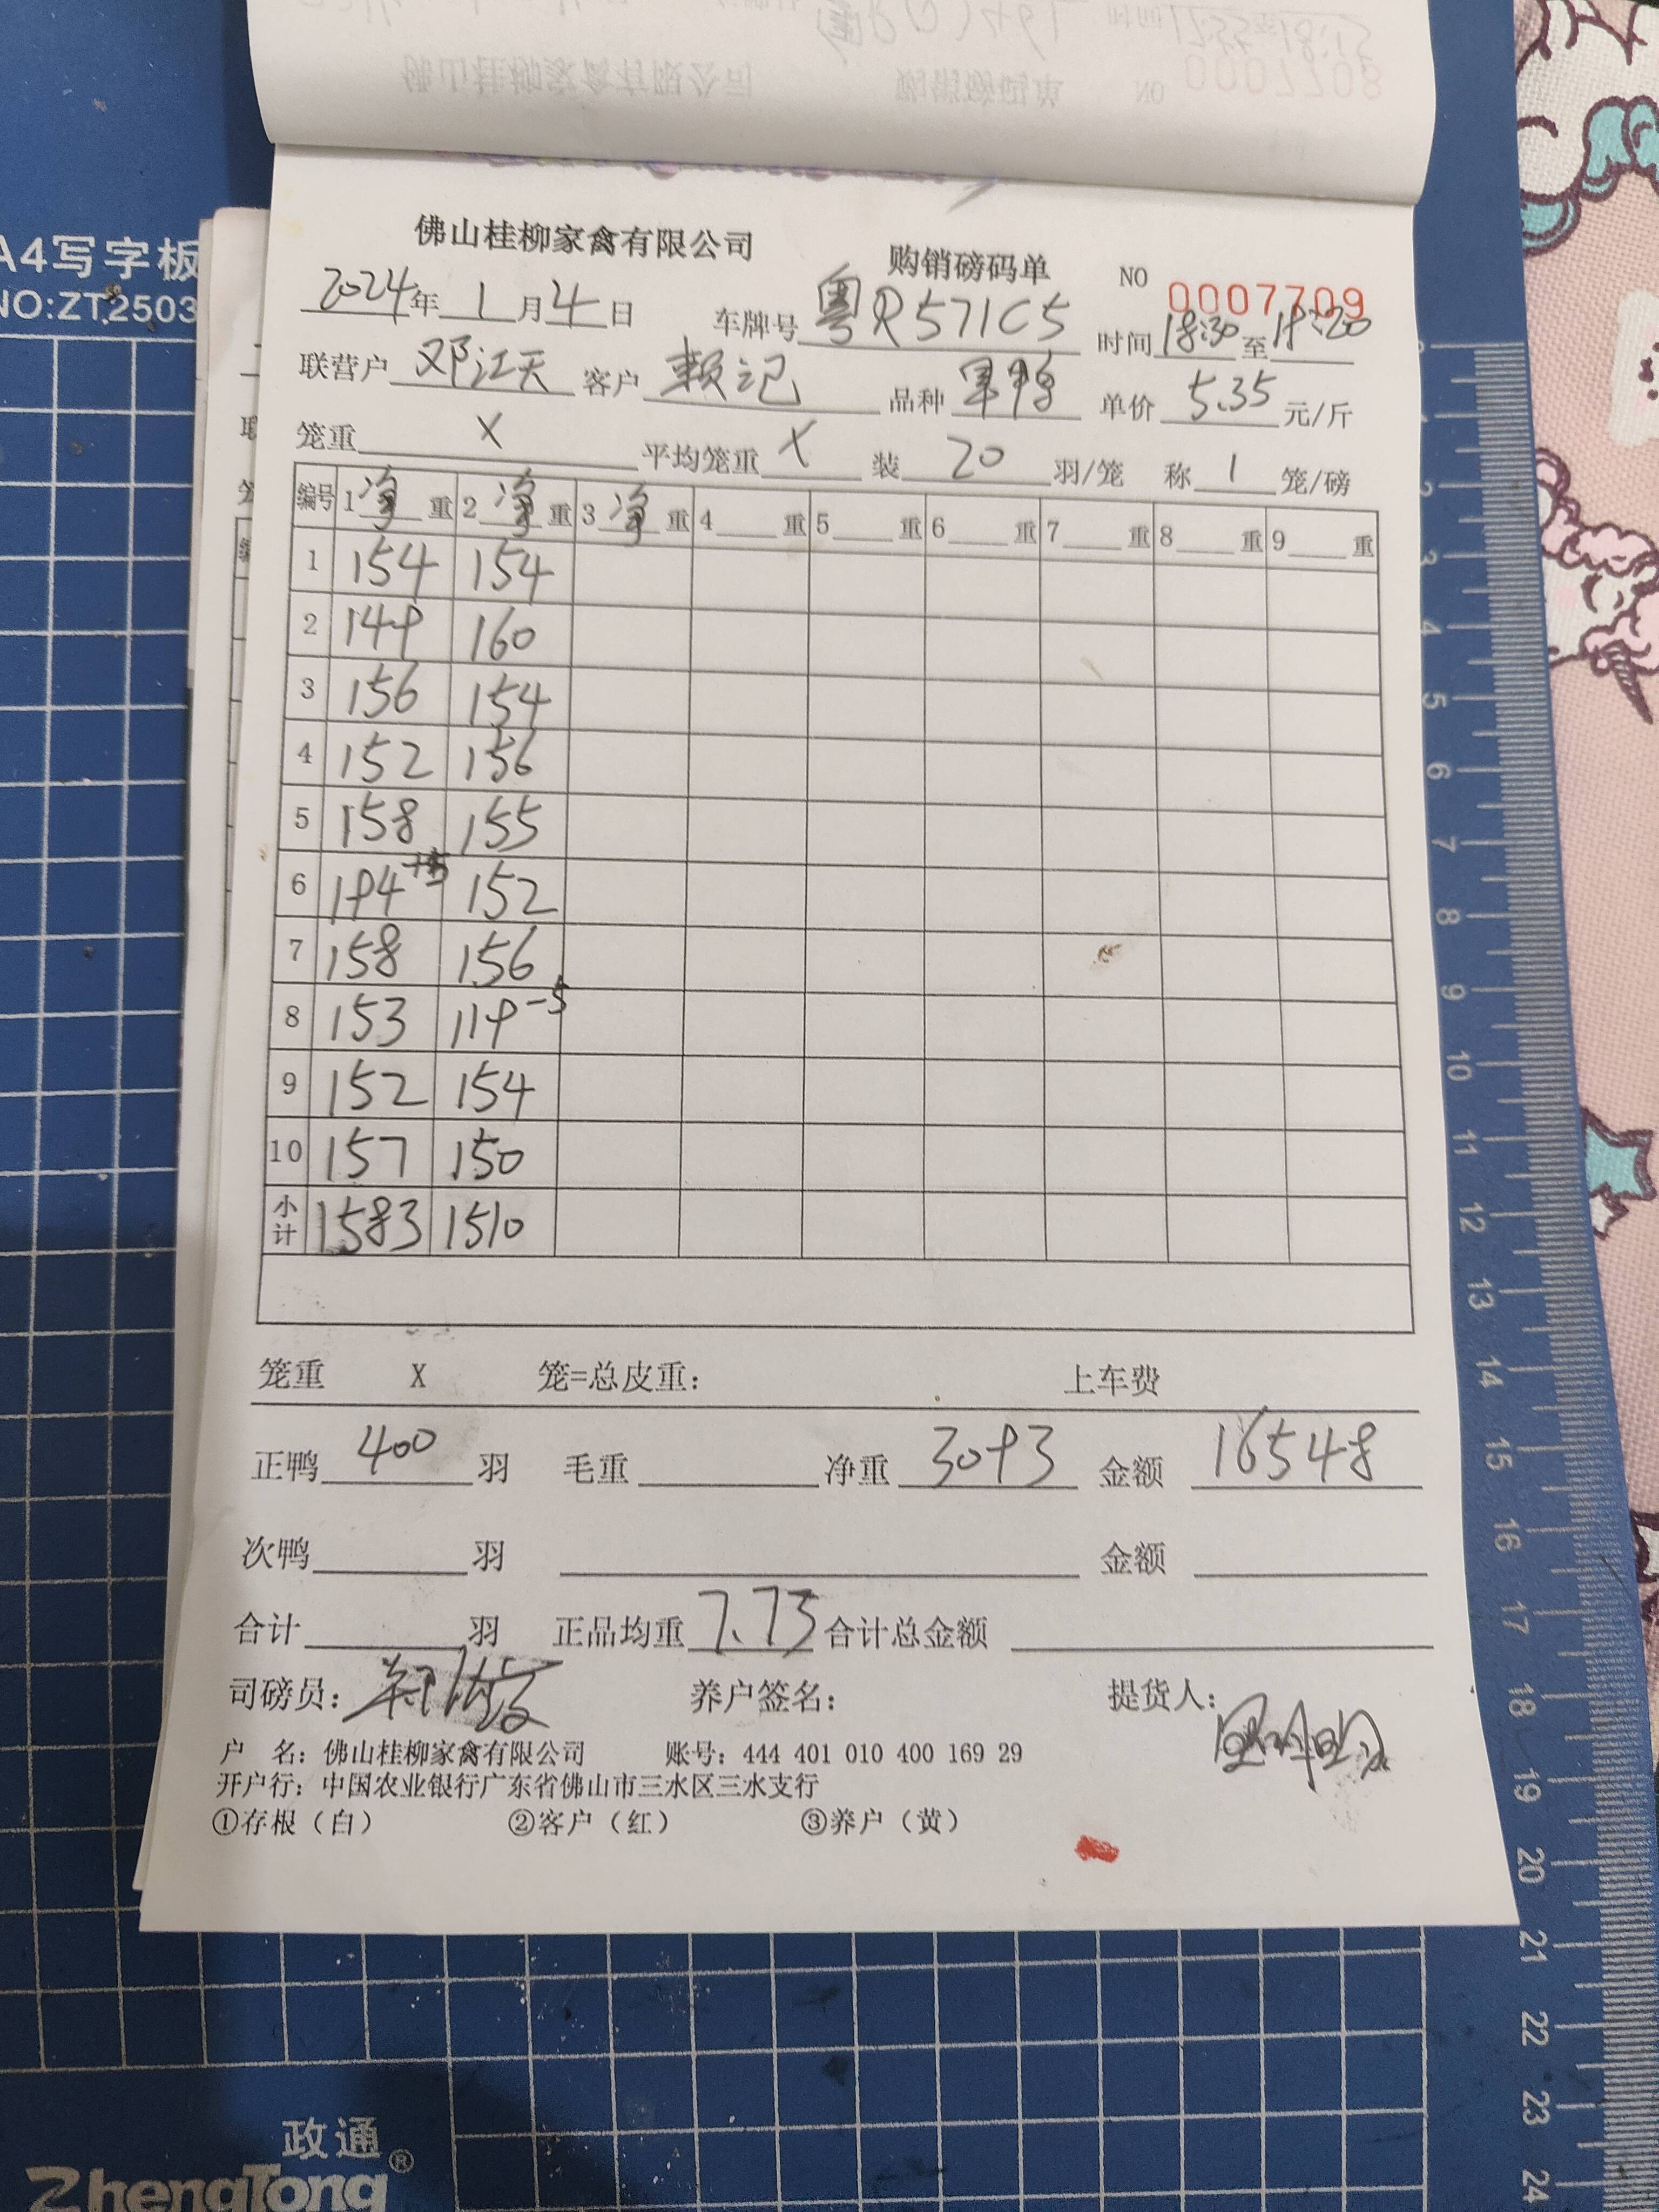 A4写字板
NO:ZT2503
佛山桂柳家禽有限公司 购销磅码单 NO 0007709
2024年 1月4日 车牌号 粤R571C5 时间 18:30 至 19:20
联营户 邓江天 客户 赖记 品种 单价 5.35 元/斤
笼重 X 平均笼重 X 装 20 羽/笼 称 1 笼/磅
编号 1 净 重 2 净 重 3 净 重 4 重 5 重 6 重 7 重 8 重 9 重
1 154 154
2 149 160
3 156 154
4 152 156
5 158 155
6 194+5 152
7 158 156
8 153 119-5
9 152 154
10 157 150
小计 1583 1510
笼重 X 笼=总皮重: 上车费
正鸭 400 羽 毛重 净重 3093 金额 16548
次鸭 羽 金额
合计 羽 正品均重 7.73 合计总金额
司磅员: 养户签名: 提货人:
户 名: 佛山桂柳家禽有限公司 账号: 444 401 010 400 169 29
开户行: 中国农业银行广东省佛山市三水区三水支行
①存根（白） ②客户（红） ③养户（黄）
政通®
ZhengTong